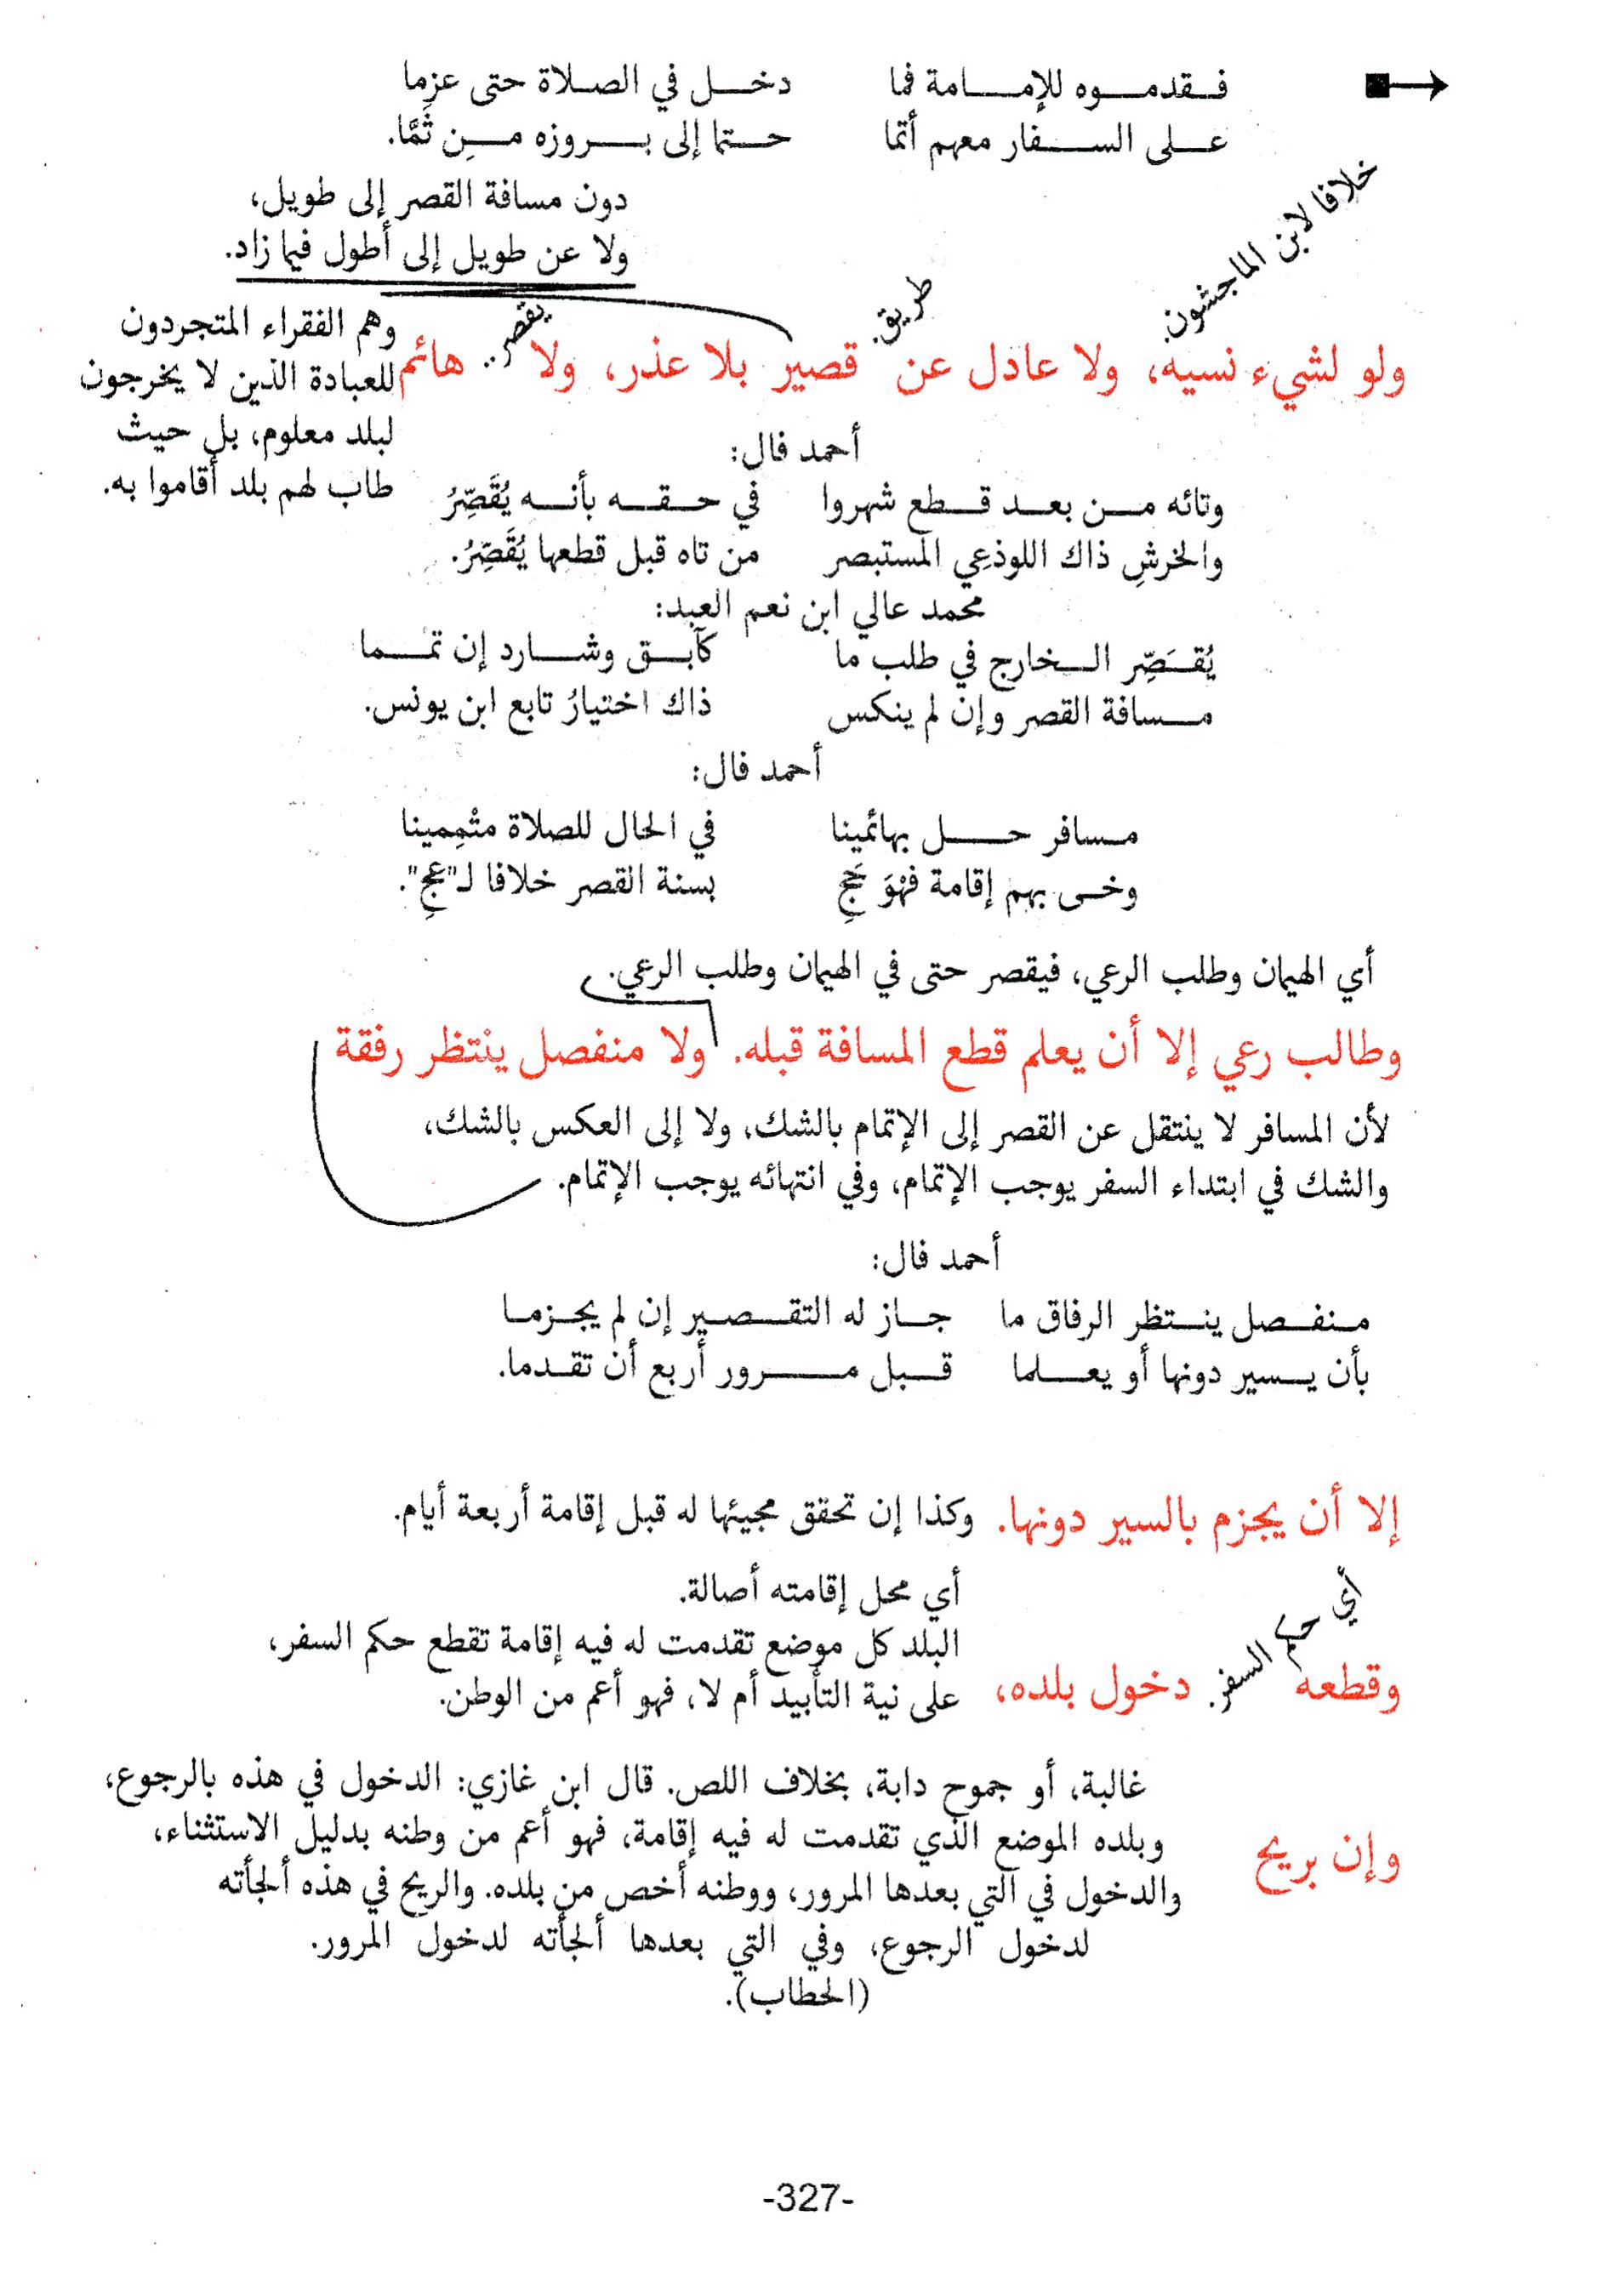 فقدموه للإمامة فما دخل في الصلاة حتى عزما
على السفار معهم أتما حتما إلى بروزه من ثَمَّا.
خلافا لابن الماجشون.
دون مسافة القصر إلى طويل،
ولا عن طويل إلى أطول فيما زاد.
طريق.
يقصر.
ولو لشيء نسيه، ولا عادل عن قصير بلا عذر، ولا هائم
وهم الفقراء المتجردون
للعبادة الذين لا يخرجون
لبلد معلوم، بل حيث
طاب لهم بلد أقاموا به.
أحمد فال:
وتائه من بعد قطع شهروا في حقه بأنه يُقَصِّرُ
والخرشِ ذاك اللوذعِي المستبصر من تاه قبل قطعها يُقَصِّرُ.
محمد عالي ابن نعم العبد:
يُقَصِّر الخارج في طلب ما كآبق وشارد إن تمما
مسافة القصر وإن لم ينكس ذاك اختيارُ تابع ابن يونس.
أحمد فال:
مسافر حل بهائمينا في الحال للصلاة متْمِمينا
وخى بهم إقامة فهْوَ حَجِ بسنة القصر خلافا لـ"عجِ".
أي الهيمان وطلب الرعي، فيقصر حتى في الهيمان وطلب الرعي.
وطالب رعي إلا أن يعلم قطع المسافة قبله. ولا منفصل ينتظر رفقة
لأن المسافر لا ينتقل عن القصر إلى الإتمام بالشك، ولا إلى العكس بالشك،
والشك في ابتداء السفر يوجب الإتمام، وفي انتهائه يوجب الإتمام.
أحمد فال:
منفصل ينتظر الرفاق ما جاز له التقصير إن لم يجزما
بأن يسير دونها أو يعلما قبل مرور أربع أن تقدما.
إلا أن يجزم بالسير دونها. وكذا إن تحقق مجيئها له قبل إقامة أربعة أيام.
أي محل إقامته أصالة.
البلد كل موضع تقدمت له فيه إقامة تقطع حكم السفر،
على نية التأبيد أم لا، فهو أعم من الوطن.
أي حكم السفر.
وقطعه دخول بلده،
غالبة، أو جموح دابة، بخلاف اللص. قال ابن غازي: الدخول في هذه بالرجوع،
وإن بريح وبلده الموضع الذي تقدمت له فيه إقامة، فهو أعم من وطنه بدليل الاستثناء،
والدخول في التي بعدها المرور، ووطنه أخص من بلده. والريح في هذه ألجأته
لدخول الرجوع، وفي التي بعدها ألجأته لدخول المرور.
(الحطاب).
-327-